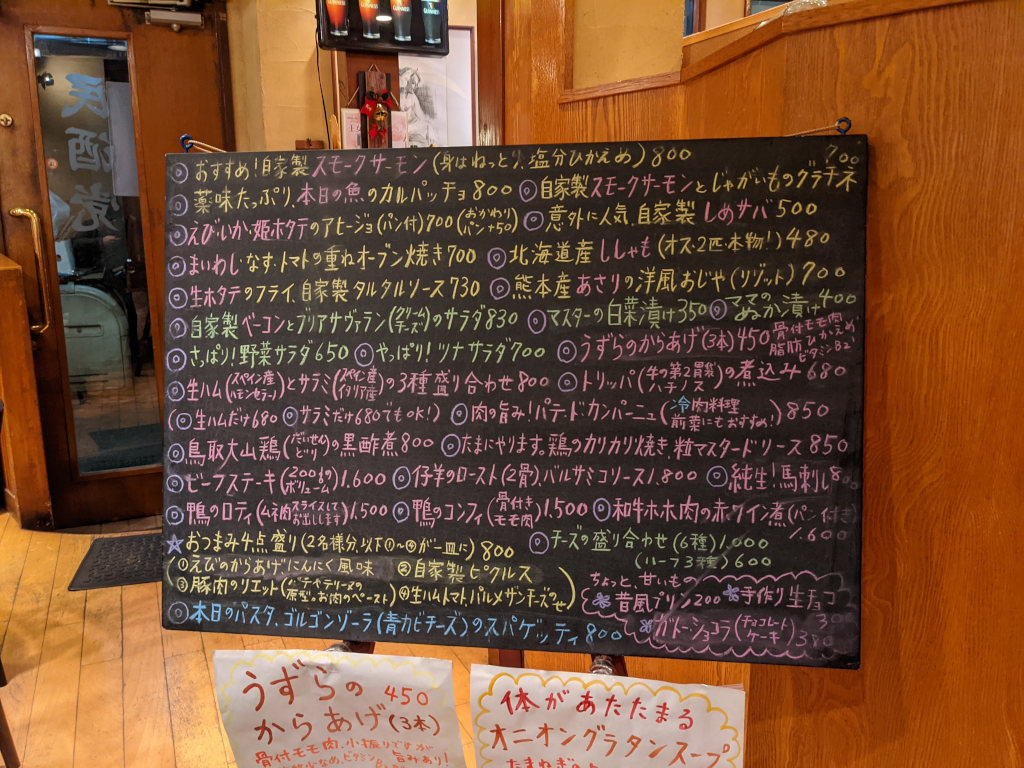 GUINNESS GUINNESS GUINNESS
民酒党
◎おすすめ!自家製スモークサーモン(身はねっとり、塩分ひかえめ)800
◎薬味たっぷり、本日の魚のカルパッチョ800 ◎自家製スモークサーモンとじゃがいものグラチネ700
◎えび・いか・姫ホタテのアヒージョ(パン付)700(おかわりパン+50) ◎意外に人気、自家製しめサバ500
◎まいわし・なす・トマトの重ねオーブン焼き700 ◎北海道産ししゃも(オス・2匹・本物!)480
◎生ホタテのフライ、自家製タルタルソース730 ◎熊本産あさりの洋風おじや(リゾット)700
◎自家製ベーコンとブリアサヴァラン(クリームチーズ)のサラダ830 ◎マスターの白菜漬け350 ◎ママのぬか漬け400
◎さっぱり!野菜サラダ650 ◎やっぱり!ツナサラダ700 ◎うずらのからあげ(3本)450 骨付モモ肉 脂肪ひかえめ ビタミンB2
◎生ハム(スペイン産ハモンセラーノ)とサラミ(スペイン産イタリア産)の3種盛り合わせ800 ◎トリッパ(牛の第2胃袋ハチノス)の煮込み680
(◎生ハムだけ680 ◎サラミだけ680でもOK!) ◎肉の旨み!パテ・ド・カンパーニュ(冷肉料理 前菜にもおすすめ!)850
◎鳥取大山鶏(だいせんどり)の黒酢煮800 ◎たまにやります。鶏のカリカリ焼き、粒マスタードソース850
◎ビーフステーキ(200gのボリューム)1.600 ◎仔羊のロースト(2骨)、バルサミコソース1.800 ◎純生!馬刺し800
◎鴨のロティ(ムネ肉スライスしてお出しします)1.500 ◎鴨のコンフィ(骨付きモモ肉)1.500 ◎和牛ホホ肉の赤ワイン煮(パン付き)1.600
☆おつまみ4点盛り(2名様分、以下①〜④が一皿に)800 ◎チーズの盛り合わせ(6種)1.000
(ハーフ3種)600
(①えびのからあげにんにく風味 ②自家製ピクルス
③豚肉のリエット(パテやテリーヌの原型。お肉のペースト) ④生ハムトマト、パルメザンチーズのせ)
◎本日のパスタ、ゴルゴンゾーラ(青カビチーズ)のスパゲッティ800
ちょっと、甘いもの
昔風プリン200 手作り生チョコ300
ガトーショコラ(チョコレートケーキ)380
うずらの 450
からあげ(3本)
骨付モモ肉、小振りですが
旨みあり!
体があたたまる
オニオングラタンスープ
たまねぎの